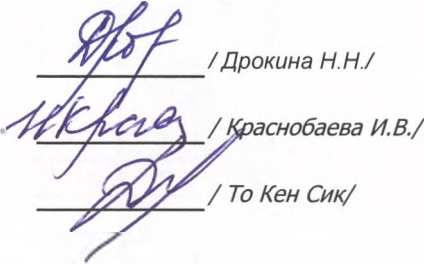 / Дрокина Н.Н./
/ Краснобаева И.В./
/ То Кен Сик/